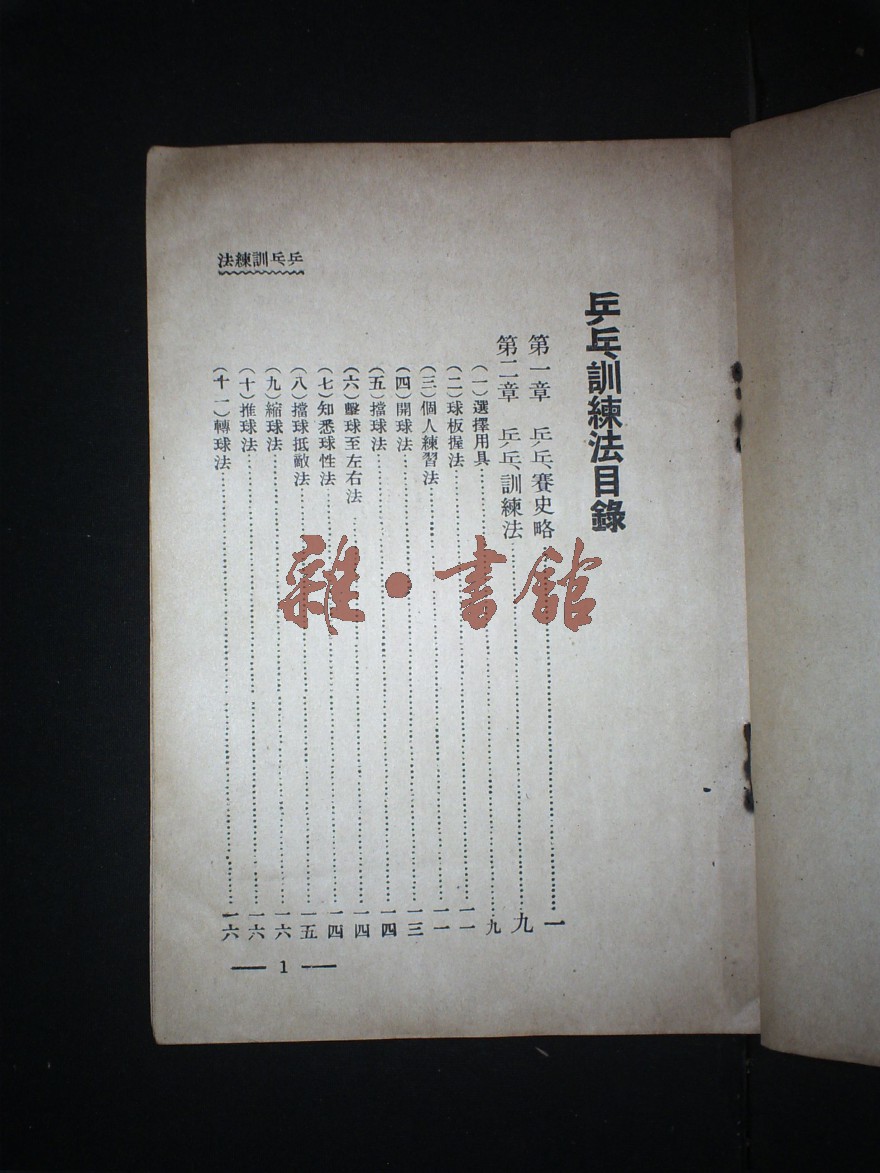 乒乓訓練法目錄
第一章　乒乓賽史略……一
第二章　乒乓訓練法……九
（一）選擇用具……九
（二）球板握法……一一
（三）個人練習法……一一
（四）開球法……一三
（五）擋球法……一四
（六）擊球至左右法……一四
（七）知悉球性法……一四
（八）擋球抵敵法……一五
（九）縮球法……一六
（十）推球法……一六
（十一）轉球法……一六
乒乓訓練法
— 1 —
雜·書館